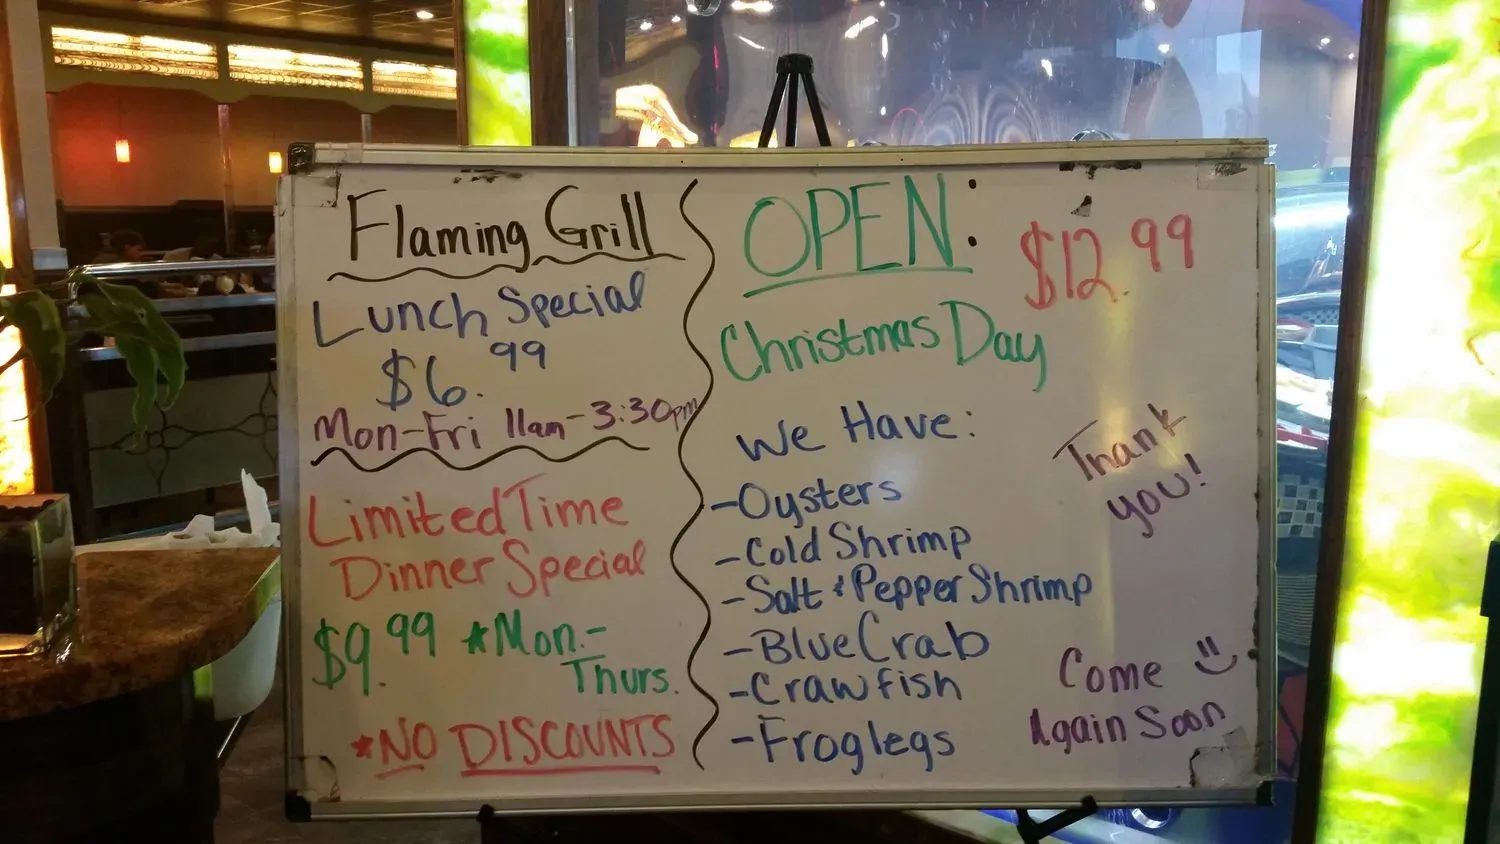 Flaming Grill
Lunch Special
$6.99
Mon-Fri 11am-3:30pm
Limited Time
Dinner Special
$9.99 *Mon.-
Thurs.
*NO DISCOUNTS
OPEN:
$12.99
Christmas Day
We Have:
-Oysters
-Cold Shrimp
-Salt & Pepper Shrimp
-Blue Crab
-Crawfish
-Frog legs
Thank
you!
Come
Again Soon